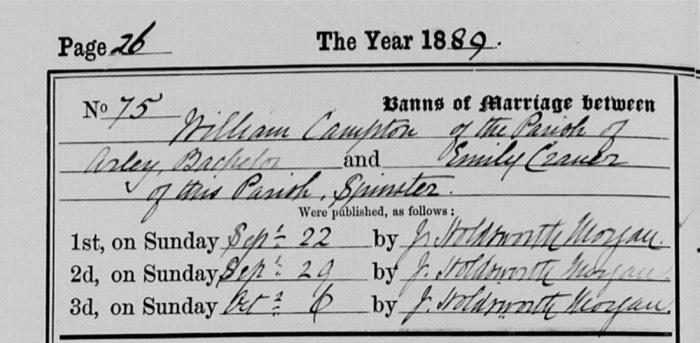 Page 26 The Year 1889.
No 75 Banns of Marriage between
William Campton of the Parish of
Arley, Bachelor and Emily Craner
of this Parish, Spinster.
Were published, as follows:
1st, on Sunday Sept. 22 by J. Holdsworth Morgan.
2d, on Sunday Sept. 29 by J. Holdsworth Morgan.
3d, on Sunday Oct. 6 by J. Holdsworth Morgan.